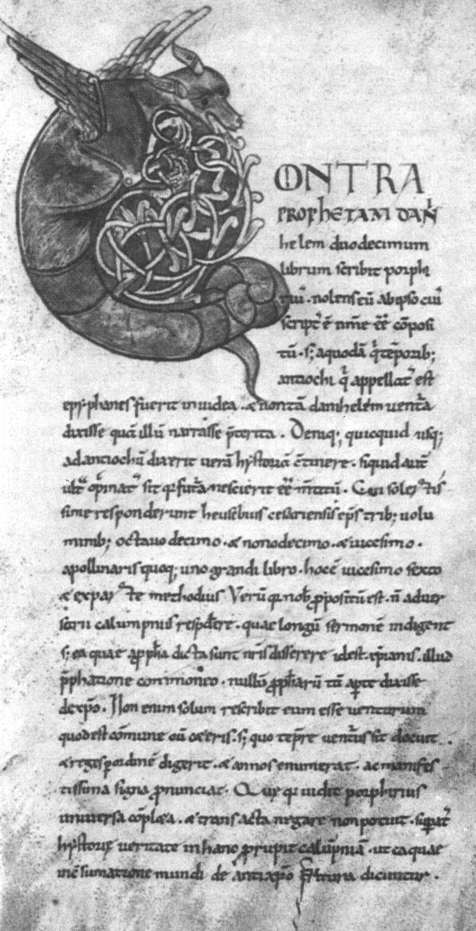 CONTRA
PROPHETAM DAÑ
helem duodecimum
librum scribit porphi
riuſ · nolens eū ab ipso cuiꝰ
script᷒ ē nom̄e eē cōposi
tū · s; aquodā q̄ tēporib;
antiochi q̄ appellat᷒ est
epyphanes fuerit in iudea · & non tā danihelem uentura
dixisse quā illū narrasse p̄terita · Deniq; quicquid usq;
ad antiochū dixerit uerā hystoriā c̄tinere · siquid aut̄
ult᷑ opinat᷒ sit q᷒ futura nescierit eē m̄titū · Cui soler tis
sime responderunt heusebius cesariensis ep̄s trib; uolu
minib; octauo decimo · & nonodecimo · & uicesimo ·
apollinaris quoq; uno grandi libro · hoc ē uicesimo sexto
& ex par te methodius Verū q᷒ nob̄ p̄positū est · n̄ aduer
sarii calumpniis resp̄dere · quae longū sermonē indigent
s; ea quae a p̄pha dicta sunt nr̄is disserere idest · xp̄ianis · illud
p̄phatione commoneo · nullū p̄phar̄ū tā apte dixisse
de xp̄o · Non enim solum rescribit eum esse uenturum
quod est cōmune cū ceteris · s; quo tēpre uentur᷒ sit docuit
& reges p̄ ordinē digerit · & annos enumerat · ac manifes
tissima signa p̄nunciat · Quae q᷒ uidit porphirius
uniuersa cōpleta · & trans acta negare non potuit · supat᷒
hystorie ueritate in hanc prupit calūpniā · ut ea quae
in c̄sumatione mundi de antixp̄o futura dicuntur ·